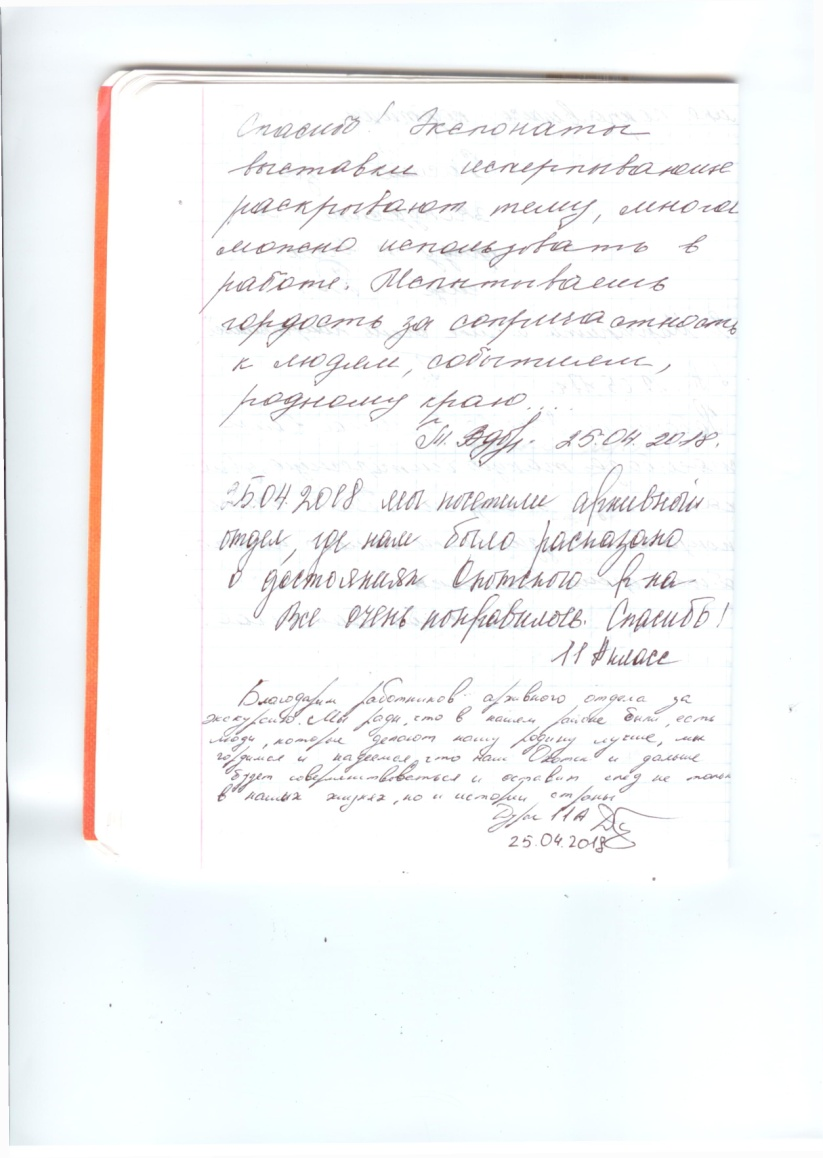 Спасибо! Экспонаты
выставки исчерпывающе
раскрывают тему, многое
можно использовать в
работе. Испытываешь
гордость за сопричастность
к людям, событиям,
родному краю...
25.04.2018.
25.04.2018 мы посетили архивный
отдел, где нам было расказано
о достояниях Охотского р-на
Все очень понравилось. Спасибо!
11 А класс
Благодарим работников архивного отдела за
экскурсию. Мы рады, что в нашем районе были, есть
люди, которые делают нашу родину лучше, мы
гордимся и надеемся, что наш Охотск и дальше
будет совершенствоваться и оставит след не только
в наших жизнях, но и истории страны
11А
25.04.2018